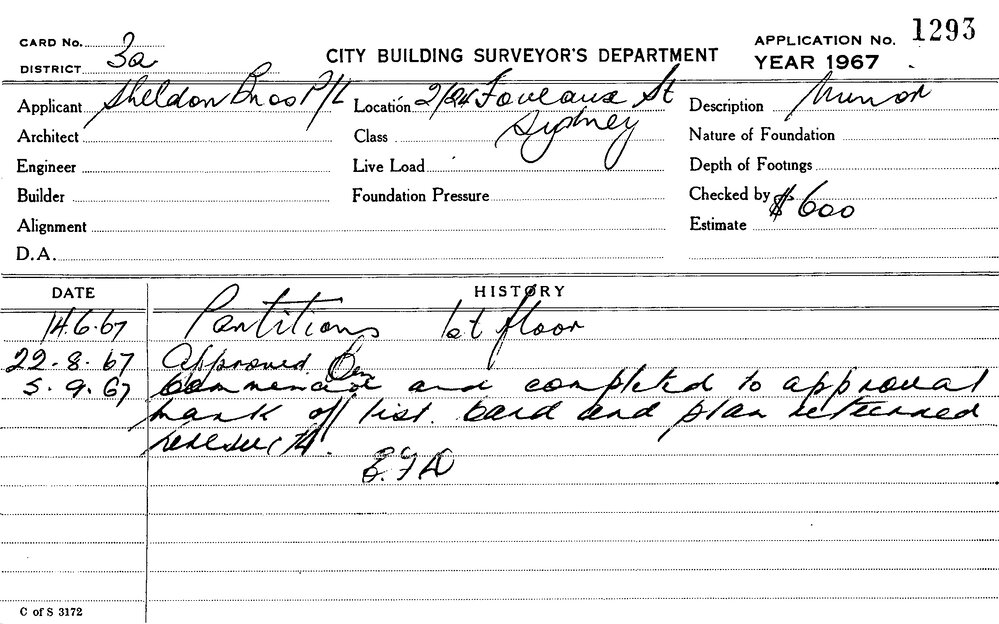 CARD No. 3a
DISTRICT
CITY BUILDING SURVEYOR'S DEPARTMENT
APPLICATION No. 1293
YEAR 1967
Applicant Sheldon Bros P/L
Location 2/84 Foveaux St
Sydney
Description Minor
Architect
Class
Nature of Foundation
Engineer
Live Load
Depth of Footings
Builder
Foundation Pressure
Checked by
Alignment
Estimate $600
D.A.
DATE
HISTORY
14.6.67 Partitions 1st floor
22.8.67 Approved
5.9.67 Commenced and completed to approval
mark off list. card and plan returned
herewith.
C of S 3172